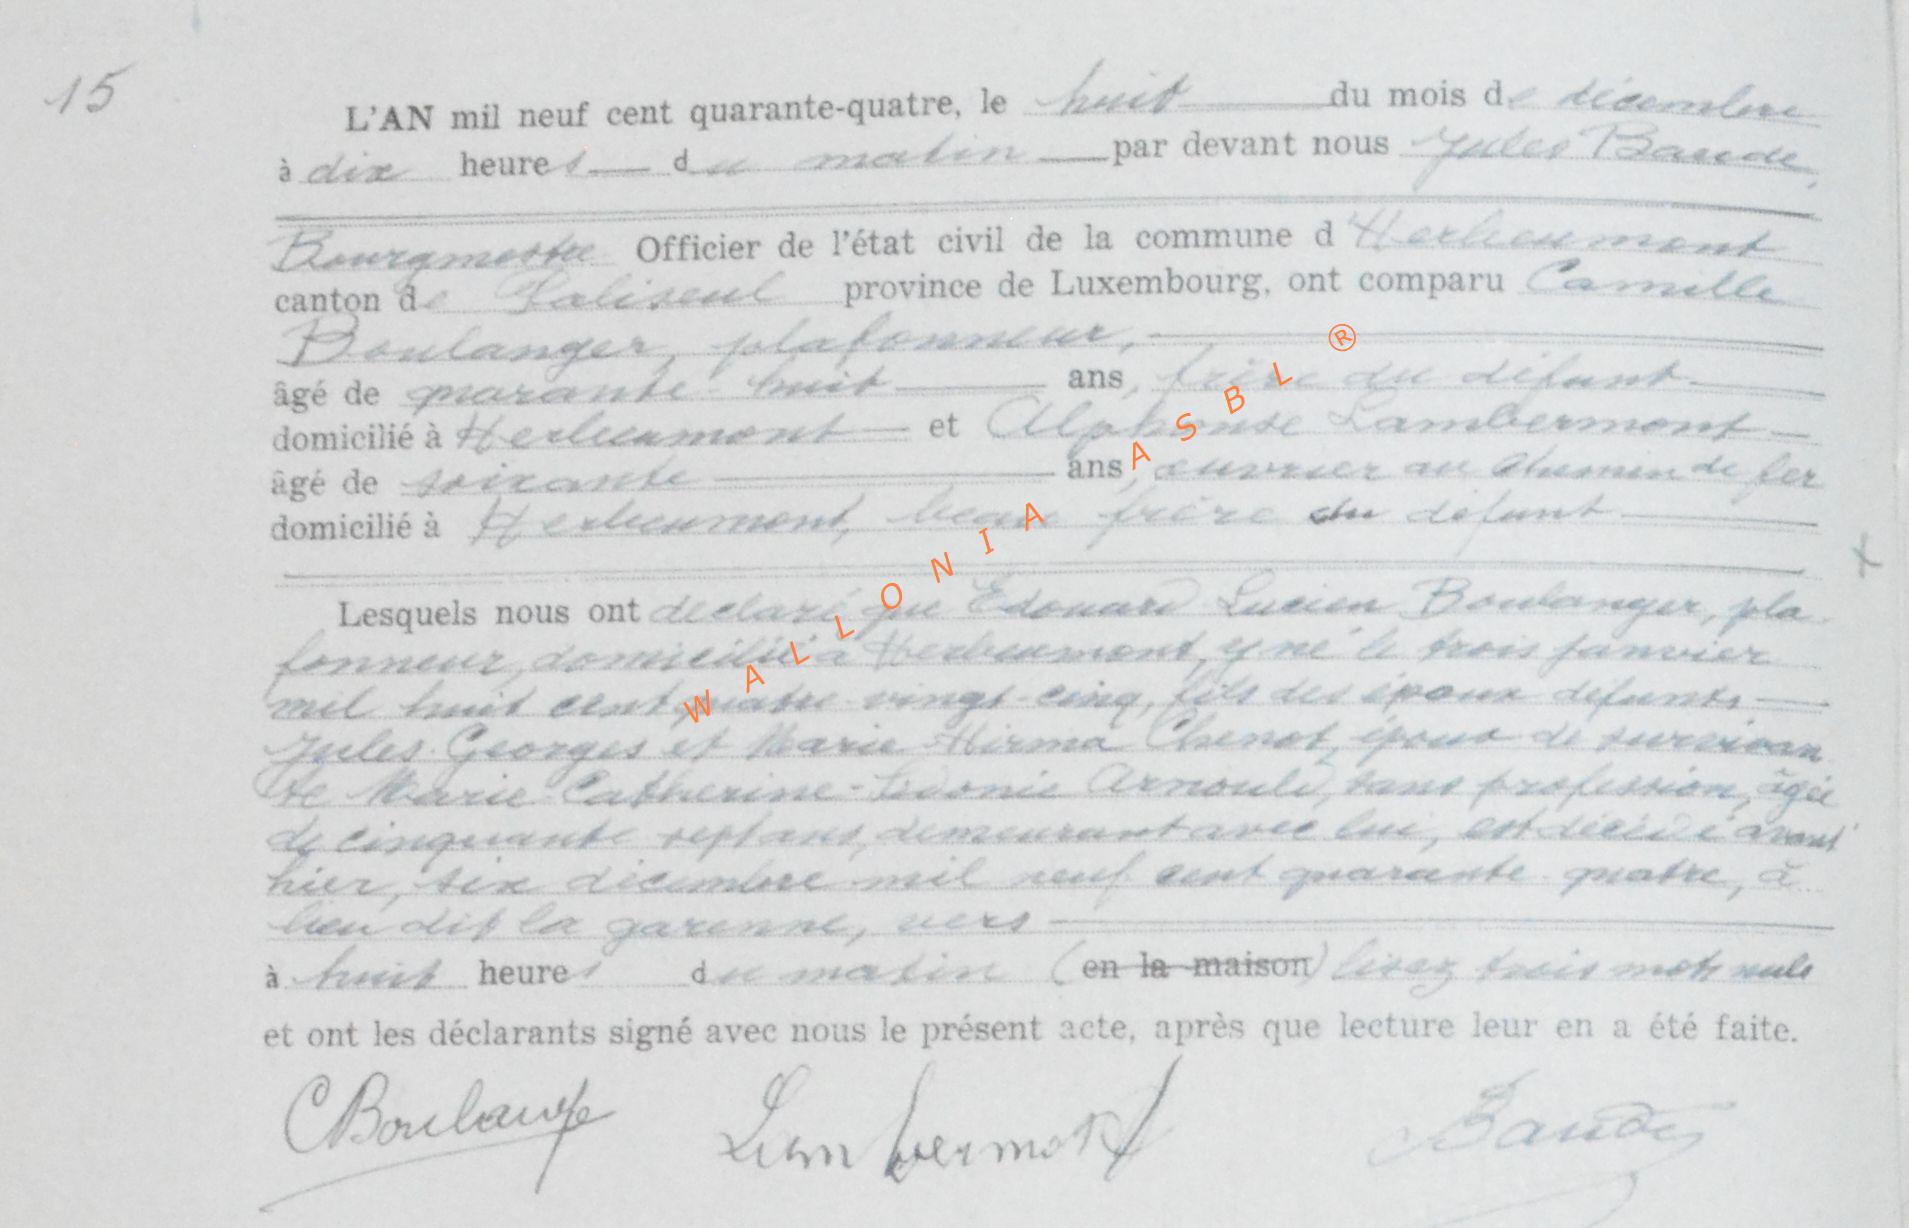 15
L'AN mil neuf cent quarante-quatre, le huit du mois de décembre
à dix heures du matin par devant nous Jules Baude,
Bourgmestre Officier de l'état civil de la commune d'Herbeumont
canton de Paliseul province de Luxembourg, ont comparu Camille
Boulanger, plafonneur,
âgé de quarante-huit ans, frère du défunt
domicilié à Herbeumont et Alphonse Lambermont
âgé de soixante ans, ouvrier au chemin de fer
domicilié à Herbeumont, beau frère du défunt
Lesquels nous ont declaré que Edouard Lucien Boulanger, pla
fonneur, domicilié à Herbeumont, y né le trois janvier
mil huit cent quatre-vingt-cinq, fils des époux défunts
Jules Georges et Marie Chenot, époux de survivan
te Marie-Catherine-Sidonie Arnould, sans profession, âgée
de cinquante sept ans, demeurant avec lui, est décédé avant
hier, six décembre mil neuf cent quarante-quatre, à
lieu dit la garenne, vers
à huit heures du matin (en la maison) lisez trois mots nuls
et ont les déclarants signé avec nous le présent acte, après que lecture leur en a été faite.
C Boulanger Lambermont Baude
WALLONIA ASBL ®